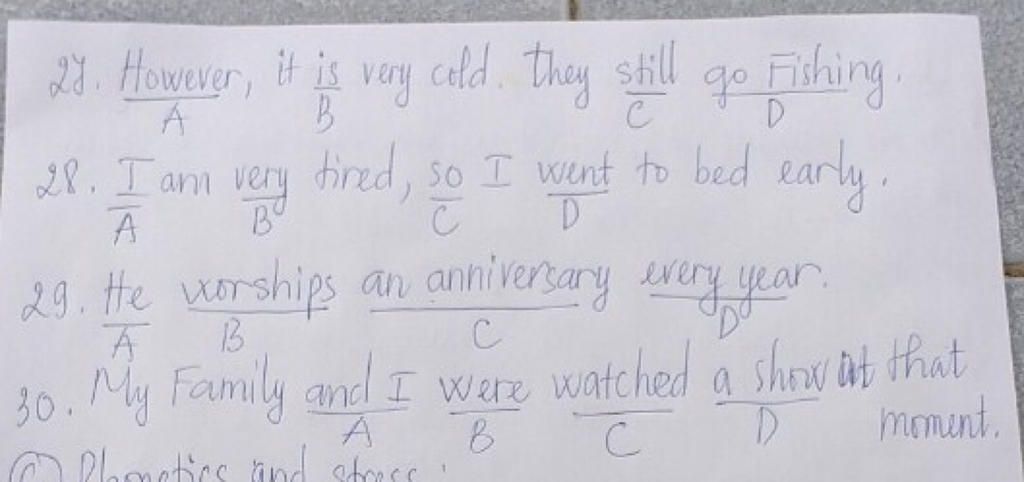 27. However, it is very cold. they still go Fishing.
A B C D
28. I am very tired, so I went to bed early.
A B C D
29. He worships an anniversary every year.
A B C D
30. My Family and I were watched a show at that
moment.
A B C D
C) Phonetics and stress: